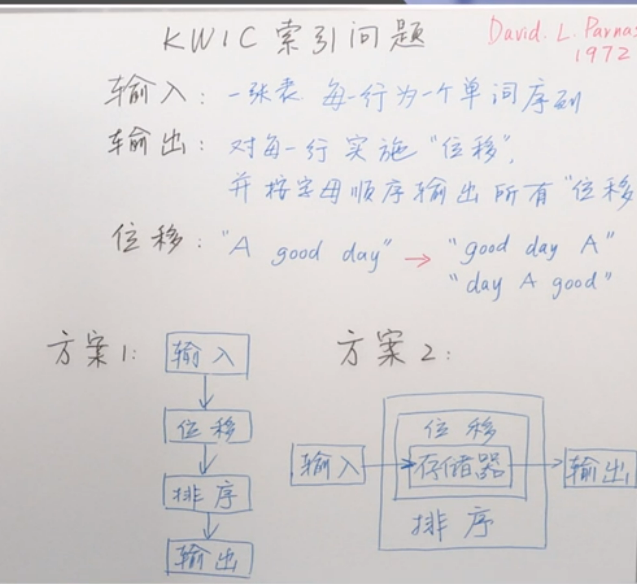 KWIC 索引问题
David. L. Parnas
1972
输入: 一张表 每一行为一个单词序列
输出: 对每一行 实施 "位移",
并按字母顺序输出所有"位移
位移: "A good day" → "good day A"
"day A good"
方案1:
输入
位移
排序
输出
方案2:
输入
位移
存储器
排序
输出